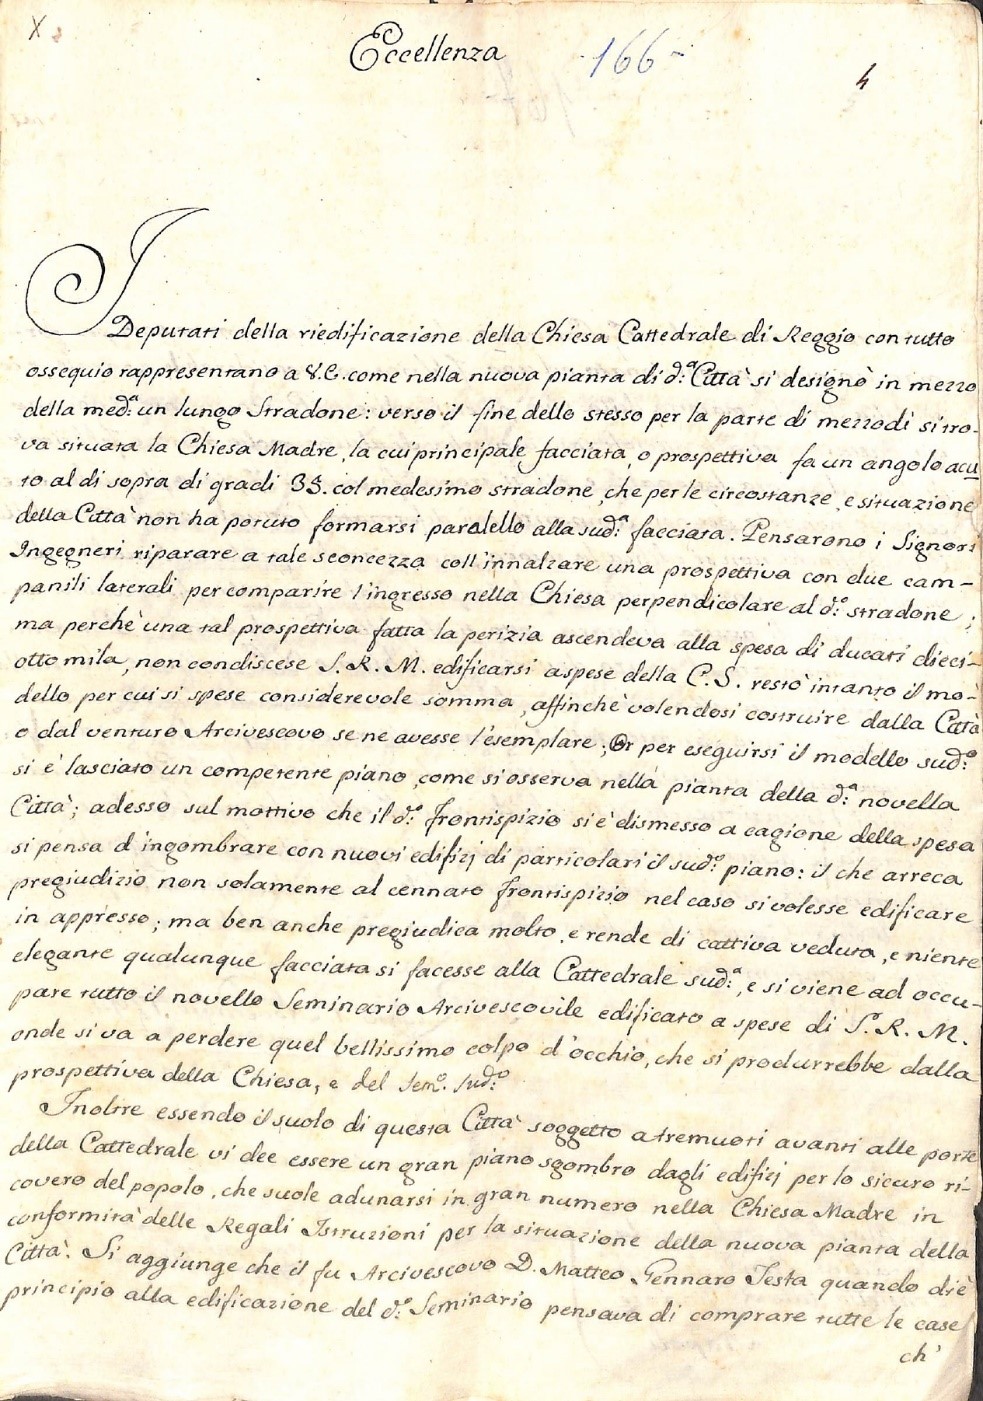 X
Eccellenza
166-
4
I Deputati della riedificazione della Chiesa Cattedrale di Reggio con tutto
ossequio rappresentano a V.E. come nella nuova pianta di d:ª Città si designò in mezzo
della med:ª un lungo Stradone: verso il fine dello stesso per la parte di mezzodì si tro-
va situata la Chiesa Madre, la cui principale facciata, o prospettiva fa un angolo acu
to al di sopra di gradi 35. col medesimo stradone, che per le circostanze, e situazione
della Città non ha potuto formarsi paralello alla sud:ª facciata. Pensarono i Signori
Ingegneri riparare a tale sconcezza coll'innalzare una prospettiva con due cam-
panili laterali per comparire l'ingresso nella Chiesa perpendicolare al d:º stradone;
ma perchè una tal prospettiva fatta la perizia ascendeva alla spesa di ducati dieci-
otto mila, non condiscese S. R. M. edificarsi a spese della C. S. restò intanto il mo-
dello per cui si spese considerevole somma, affinchè volendosi costruire dalla Città
o dal venturo Arcivescovo se ne avesse l'esemplare; Or per eseguirsi il modello sud:º
si è lasciato un competente piano, come si osserva nella pianta della d:ª novella
Città; adesso sul mottivo che il d:º frontispizio si è dismesso a cagione della spesa
si pensa d'ingombrare con nuovi edifizj di particolari il sud:º piano: il che arreca
pregiudizio non solamente al cennato frontispizio nel caso si volesse edificare
in appresso; ma ben anche pregiudica molto, e rende di cattiva veduta, e niente
elegante qualunque facciata si facesse alla Cattedrale sud:ª, e si viene ad occu-
pare tutto il novello Seminario Arcivescovile edificato a spese di S. R. M.
onde si va a perdere quel bellissimo colpo d'occhio, che si produrrebbe dalla
prospettiva della Chiesa, e del Sem:º sud:º
Inoltre essendo il suolo di questa Città soggetto a tremuoti avanti alle porte
della Cattedrale vi dee essere un gran piano sgombro dagli edifizj per lo sicuro ri-
covero del popolo, che suole adunarsi in gran numero nella Chiesa Madre in
conformità delle Regali Istruzioni per la situazione della nuova pianta della
Città. Si aggiunge che il fu Arcivescovo D. Matteo Gennaro Testa quando diè
principio alla edificazione del d:º Seminario pensava di comprare tutte le case
ch'